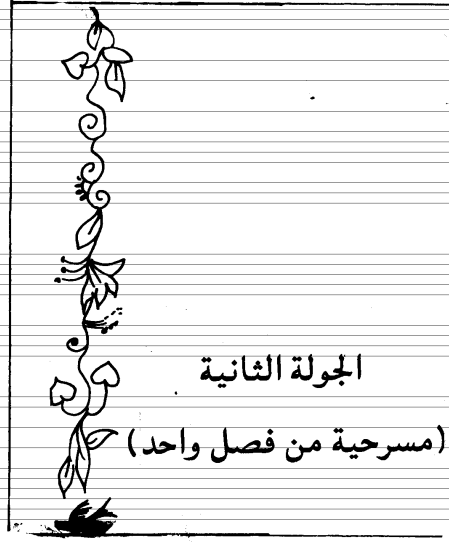 الجولة الثانية
(مسرحية من فصل واحد)